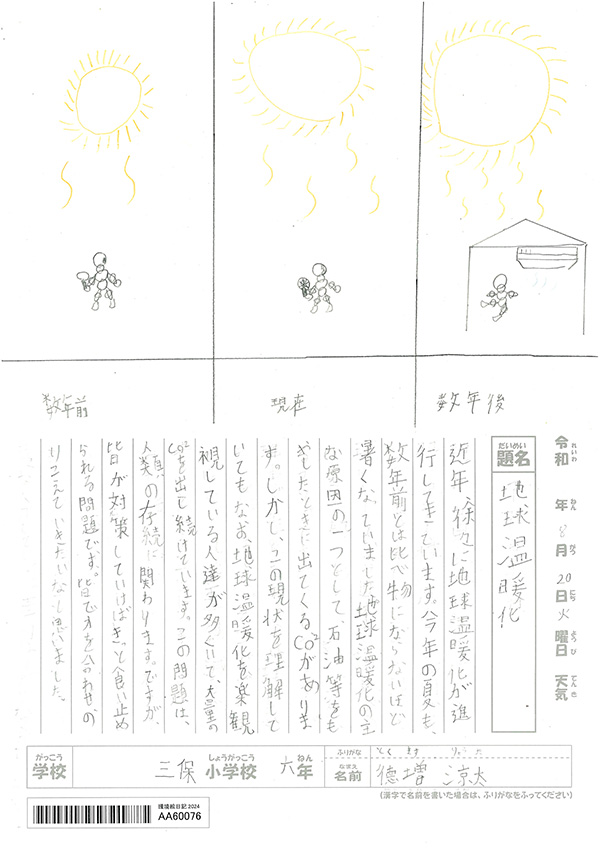 数年前
現在
数年後
令和 れいわ 年 ねん 8月 がつ 20日 にち 火曜日 ようび 天気 てんき
だいめい
題名
地球温暖化
近年、徐々に地球温暖化が進
行してきています。今年の夏も、
数年前とは比べ物にならないほど
暑くなっていました。地球温暖化の主
な原因の一つとして、石油等をも
やしたときに出てくるCO²がありま
す。しかし、この現状を理解して
いてもなお、地球温暖化を楽観
視している人達が多くいて、大量の
CO²を出し続けています。この問題は、
人類の存続に関わります。ですが、
皆が対策していけばきっと食い止め
られる問題です。皆で力を合わせ、の
りこえていきたいなと思いました。
がっこう しょうがっこう ねん ふりがな とくます りょうた
学校 三保 小学校 六年 なまえ 名前 徳増 涼太
(漢字で名前を書いた場合は、ふりがなをふってください)
環境絵日記 2024
AA60076